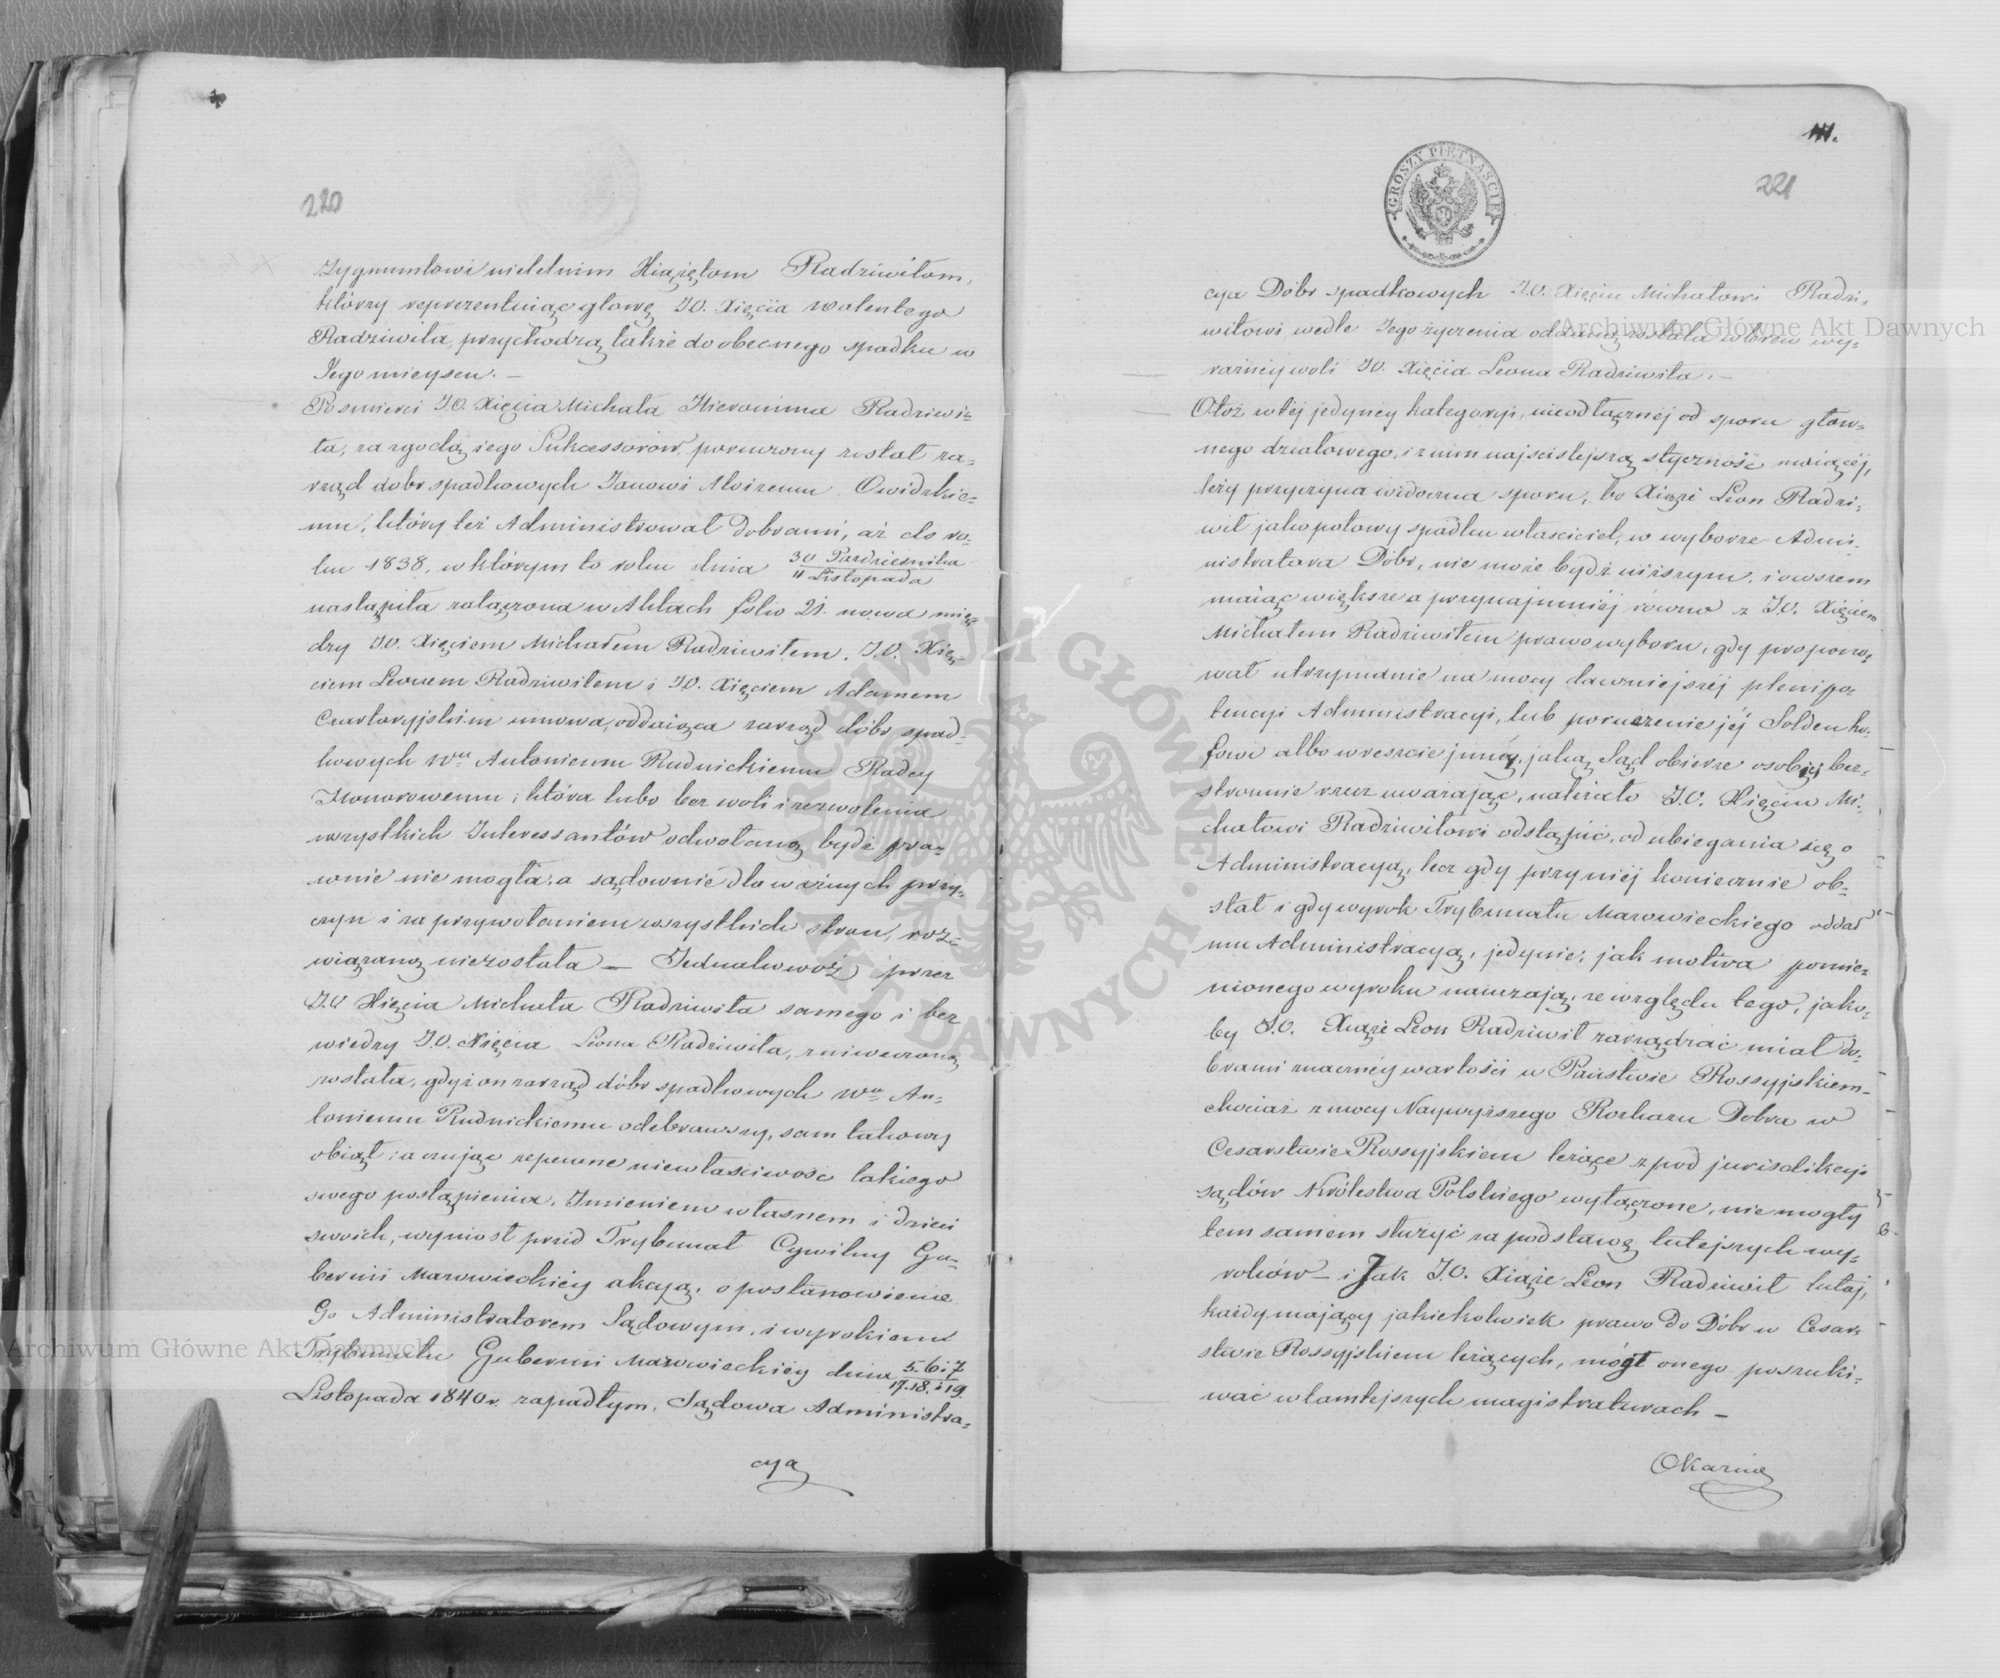 220
Zygmuntowi nieletnim Xiążętom Radziwiłom,
którzy reprezentuiąc głowę J.O. Xięcia Walentego
Radziwiła, przychodzą także do obecnego spadku w
Jego mieyscu. —
Po śmierci J.O. Xięcia Michała Hieronima Radziwi-
ła, za zgodą iego Sukcessorów, poruczony został za-
rząd dobr spadkowych Janowi Aloizemu Owidzkie-
mu, który też Administrował Dobrami, aż do ro-
ku 1838, w którym to roku dnia 30 Października
11 Listopada
nastąpiła załączona w Aktach folio 21. nowa mię-
dzy J.O. Xięciem Michałem Radziwiłem, J.O. Xię-
ciem Leonem Radziwiłem i J.O. Xięciem Adamem
Czartoryjskim umowa, oddaiąca zarząd dóbr spad-
kowych Wmu Antoniemu Rudnickiemu Radcy
Honorowemu, która lubo bez woli i zezwolenia
wszystkich Interessantów odwołaną bydź pra-
wnie nie mogła, a sądownie dla ważnych przy-
czyn i za przywołaniem wszystkich stron, roz-
wiązaną niezostała — Jednakowoż przez
J.O. Xięcia Michała Radziwiła samego i bez
wiedzy J.O. Xięcia Leona Radziwiła, zniweczoną
została, gdyż on zarząd dóbr spadkowych Wmu An-
toniemu Rudnickiemu odebrawszy, sam takowy
obiął; a czując zapewne niewłaściwość takiego
swego postąpienia, Imieniem własnem i dzieci
swoich, wyniosł przed Trybunał Cywilny Gu-
bernii Mazowieckiéy akcyą, o postanowienie
Go Administratorem Sądowym, i wyrokiem
Trybunału Gubernii Mazowieckiéy dnia 5. 6 i 7
17. 18. i 19
Listopada 1840 r. zapadłym, Sądowa Administra-
cya
111.
221
GROSZY PIĘTNAŚCIE
cya Dóbr spadkowych J.O. Xięciu Michałowi Radzi-
wiłowi wedle Jego życzenia oddaną została wbrew wy-
raźnéy woli J.O. Xięcia Leona Radziwiła. —
Otoż w téj jedynéy kategoryi, nieodłącznéj od sporu głów-
nego działowego, i z nim najściślejszą styczność maiącéj,
leży przyczyna widoczna sporu, bo Xiąże Leon Radzi-
wił jako połowy spadku właściciel, w wyborze Admi-
nistratora Dóbr, nie może bydź niższym, i owszem
maiąc większe a przynajmniéj równe z J.O. Xięciem
Michałem Radziwiłem prawo wyboru, gdy propono-
wał utrzymanie na mocy dawniejszéj plenipo-
tencyi Administracyi, lub poruczenie jéj Soldenho-
fowi albo wreszcie innéj, jaką Sąd obierze osobie, bez-
stronnie rzecz uważając, należało J.O. Xięciu Mi-
chałowi Radziwiłowi odstąpić, od ubiegania się o
Administracyą, lecz gdy przy niéj koniecznie ob-
stał i gdy wyrok Trybunału Mazowieckiego oddał
mu Administracyą, jedynie, jak motiva pomie-
nionego wyroku nauczają, ze względu tego, jako-
by J.O. Xiąże Leon Radziwił zarządzać miał do-
brami znacznéy wartości w Państwie Rossyjskiem
chociaż z mocy Naywyższego Rozkazu Dobra w
Cesarstwie Rossyjskiem leżące z pod jurisdikcyi
sądów Królestwa Polskiego wyłączone, nie mogły
tem samem służyć za podstawę tutejszych wy-
roków — i Jak J.O. Xiąże Leon Radziwił tutaj,
każdy mający jakiekolwiek prawo do Dóbr w Cesar-
stwie Rossyjskiem leżących, mógł onego poszuki-
wać w tamtejszych magistraturach —
Okazuie
Archiwum Główne Akt Dawnych
Archiwum Główne Akt Dawnych
ARCHIWUM GŁÓWNE AKT DAWNYCH